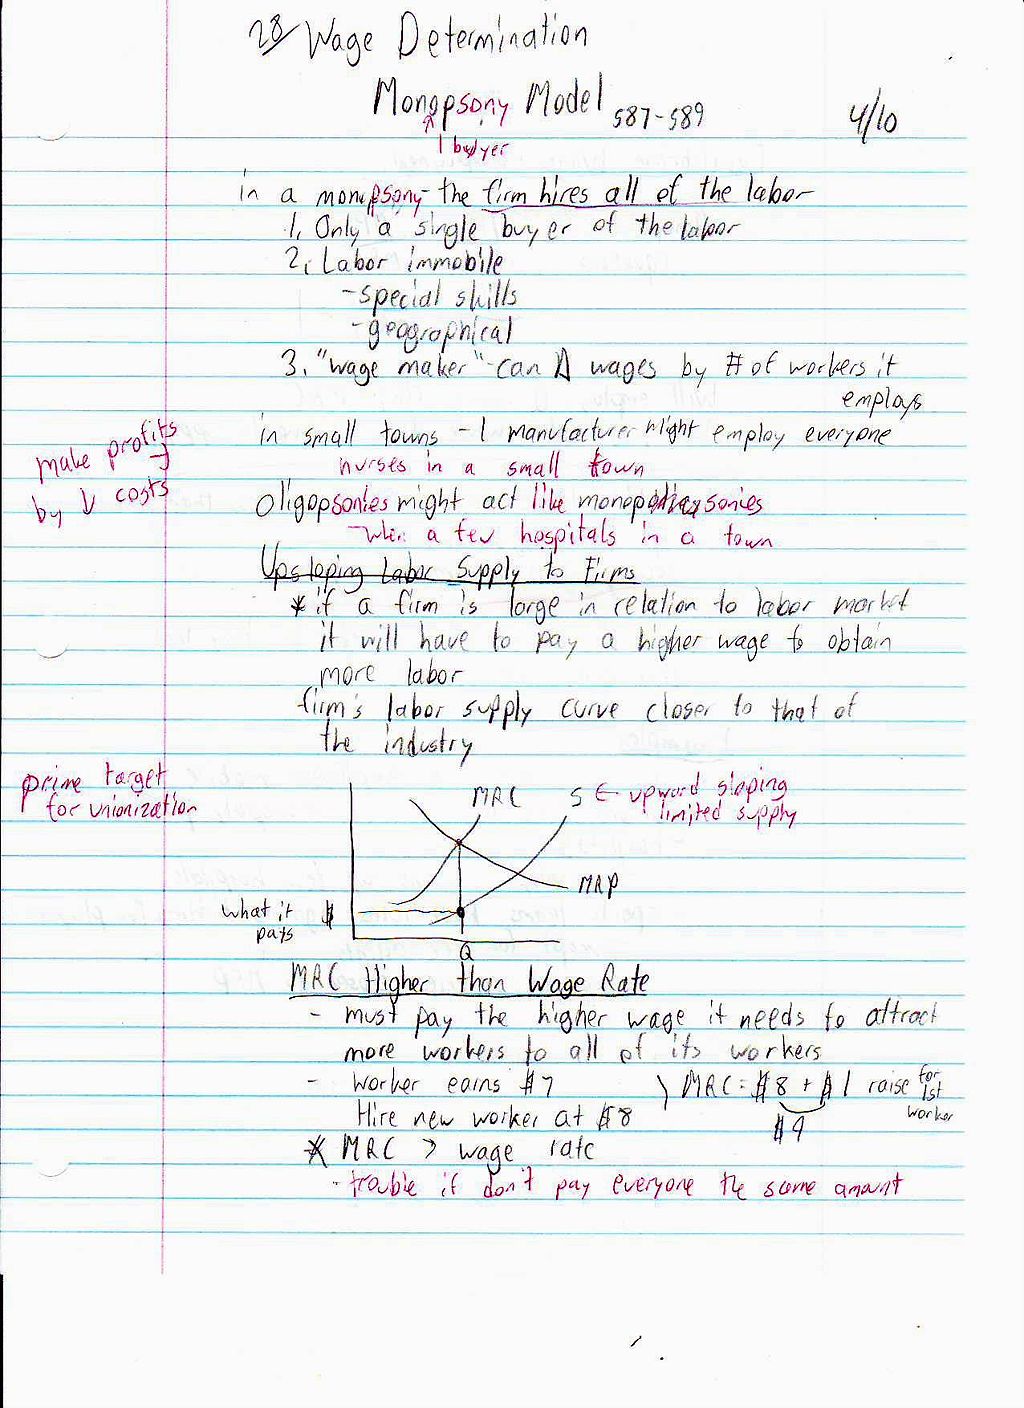 28/ Wage Determination
Monopsony Model 587-589 4/10
1 buyer
in a monopsony - the firm hires all of the labor
1. Only a single buyer of the labor
2. Labor immobile
- special skills
- geographical
3. "wage maker" - can Δ wages by # of workers it
employs
in small towns - 1 manufacturer might employ everyone
make profits
by ↓ costs
nurses in a small town
Oligopsonies might act like monopsonies
- when a few hospitals in a town
Upsloping Labor Supply to Firms
* if a firm is large in relation to labor market
it will have to pay a higher wage to obtain
more labor
firm's labor supply curve closer to that of
the industry
prime target
for unionization
MRC S ← upward sloping
limited supply
MRP
what it $
pays
Q
MRC Higher than Wage Rate
- must pay the higher wage it needs to attract
more workers to all of its workers
- Worker earns $7 } MRC = $8 + $1 raise for
1st
worker
Hire new worker at $8 $9
* MRC > wage rate
- trouble if don't pay everyone the same amount